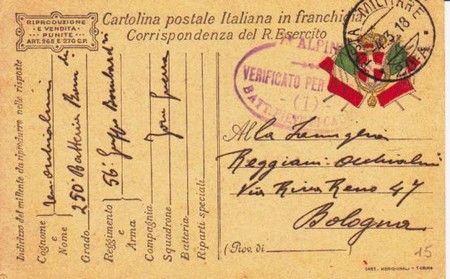 RIPRODUZIONE
E VENDITA
PUNITE
ART. 268 E 270 C.P.
Cartolina postale Italiana in franchigia
Corrispondenza del R. Esercito
POSTA MILITARE
4.3.18
ALPINI
VERIFICATO PER
(1)
Indirizzo del mittente da riprodurre nelle risposte
Cognome e Nome
Grado 250ª Batteria
Reggimento e Arma 56º Gruppo
Compagnia
Squadrone Zona guerra
Batteria
Riparti speciali
Alla famiglia
Reggiani
Via Riva Reno 47
Bologna
(Prov. di
15